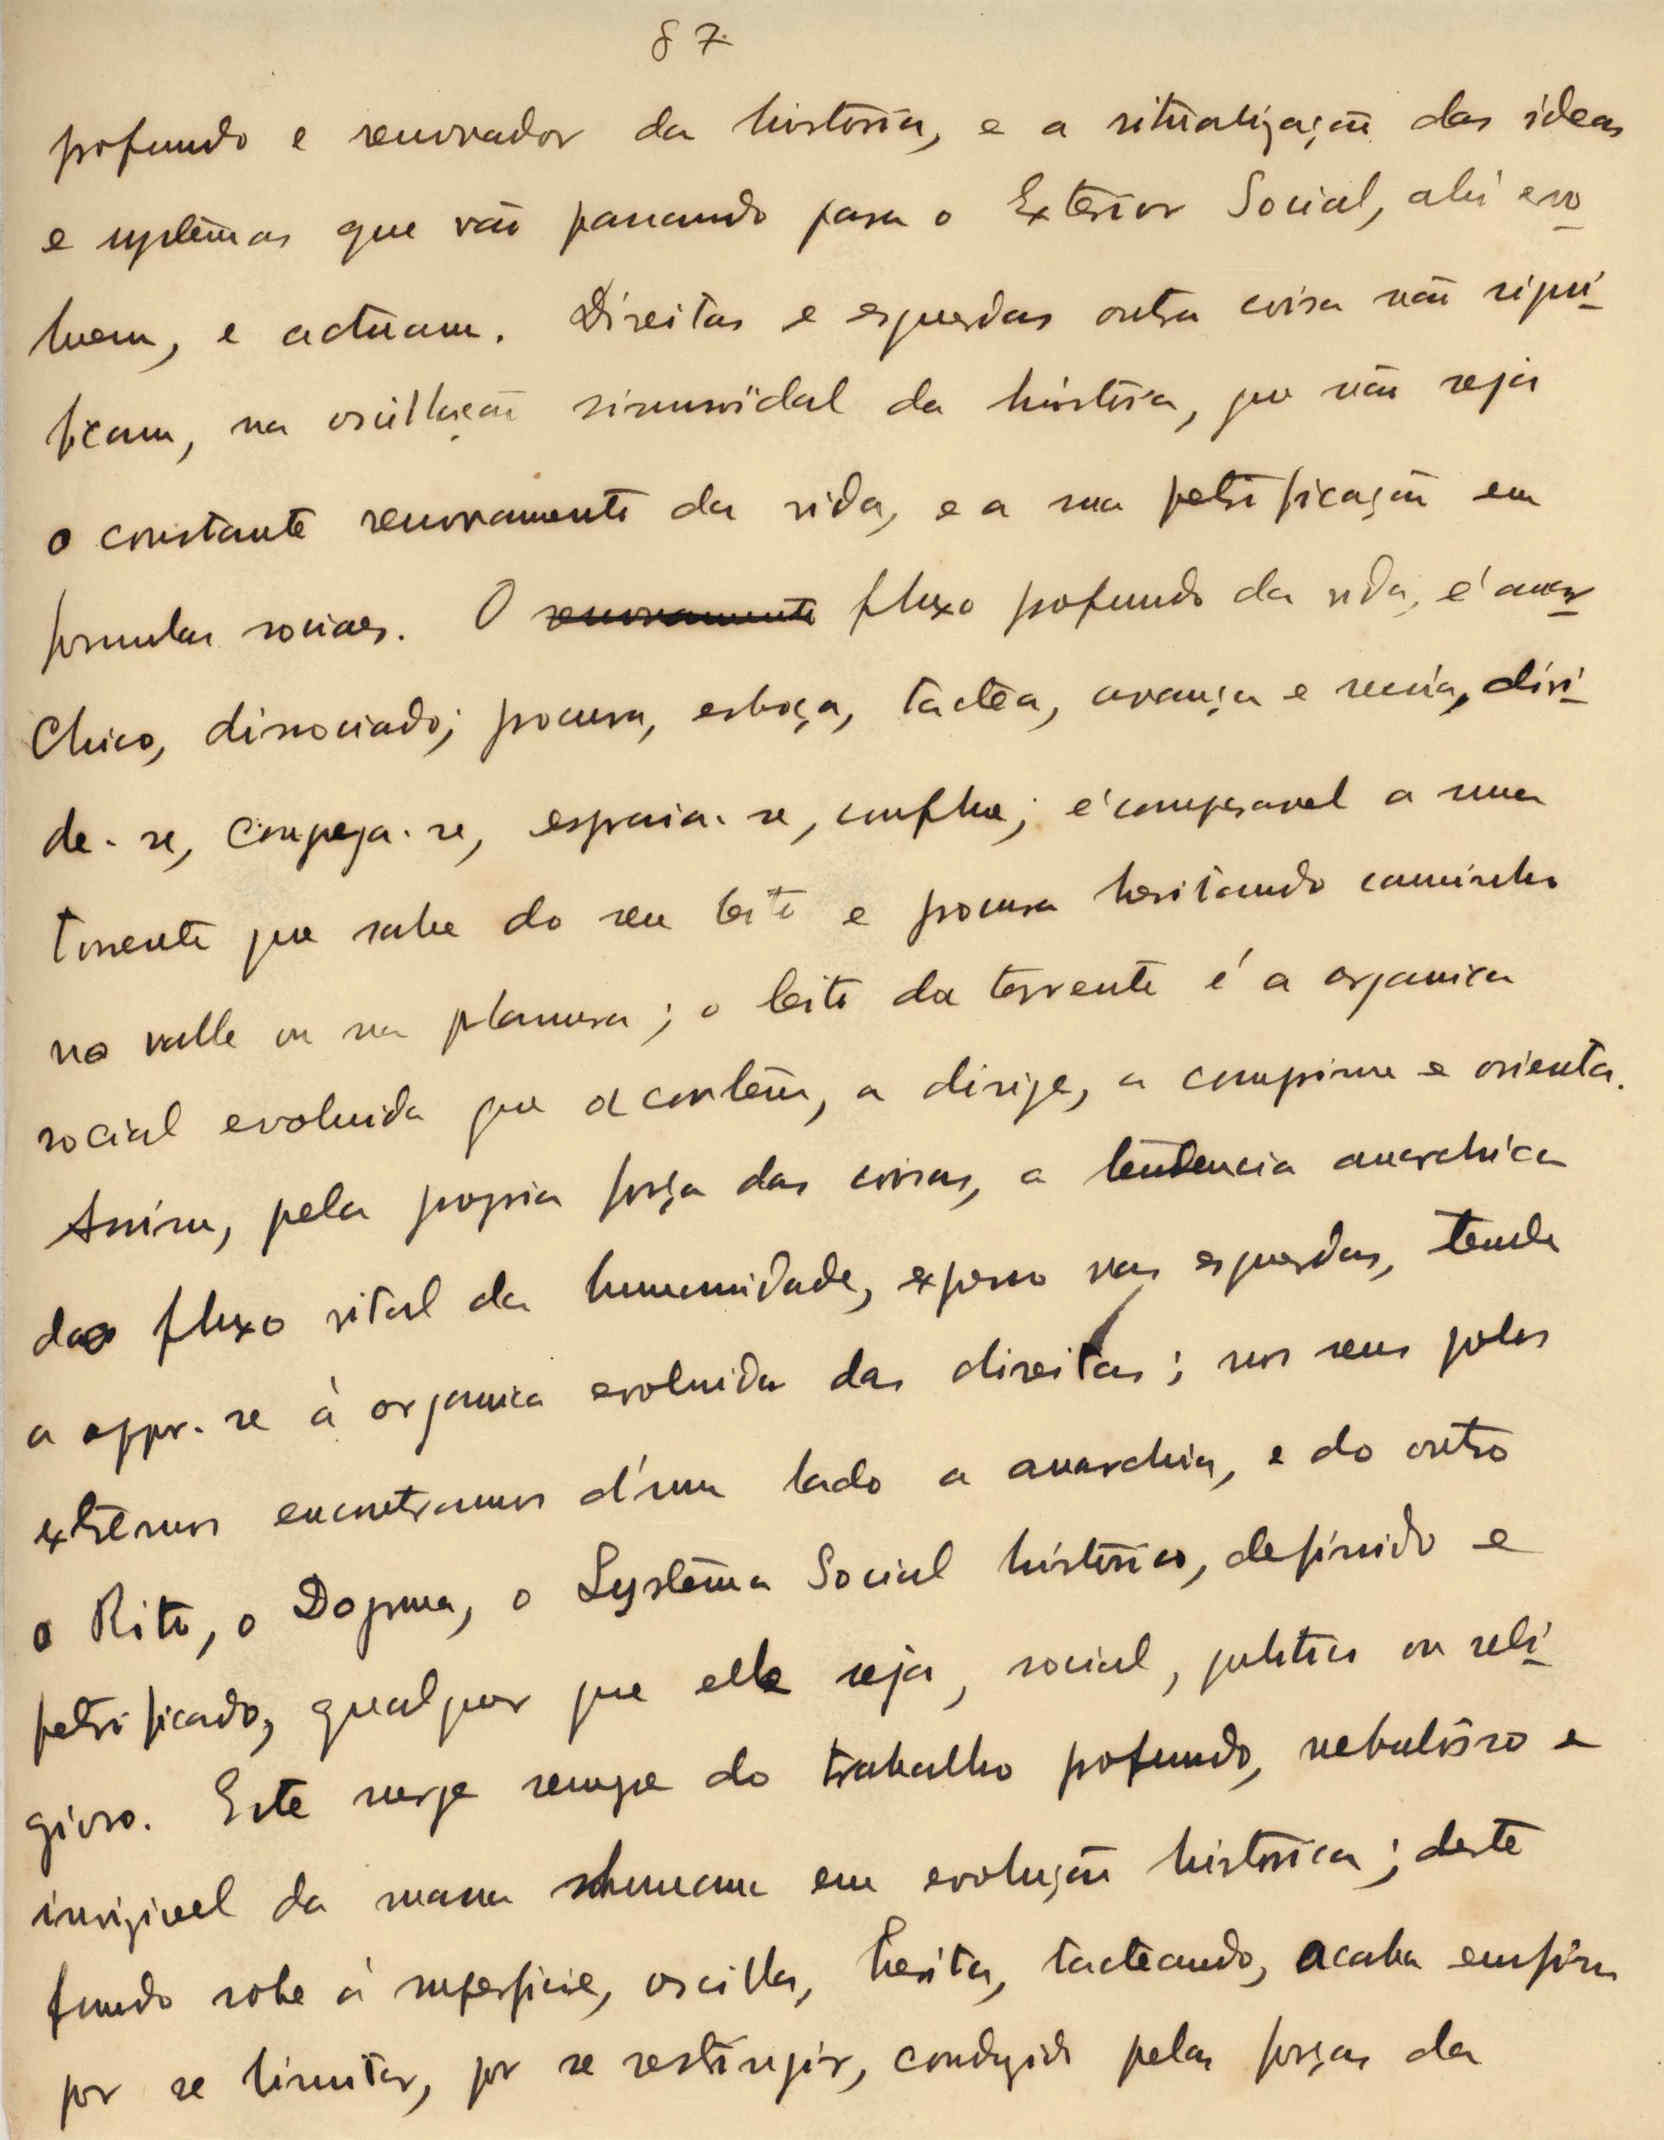 87
profundo e renovador da história, e a ritualização das ideas
e systêmas que vão passando para o Exterior Social, ahi evo-
luem, e actuam. Direitas e esquerdas outra coisa não signi-
ficam, na oscillação sinusoïdal da história, que não seja
o constante renovamento da vida, e a sua petrificação em
formulas sociaes. O renovamento fluxo profundo da vida, é anar-
chico, dissociado; procura, esboça, tactêa, avança e recúa, divi-
de-se, congrega-se, espraia-se, conflue; é comparavel a uma
torrente que sahe do seu leito e procura hesitando caminho
no valle ou na planura; o leito da torrente é a organica
social evoluida que a contêm, a dirige, a comprime e orienta.
Assim, pela propria força das coisas, a tendencia anarchica
do fluxo vital da humanidade, expresso nas esquerdas, tende
a oppor-se á organica evoluida das direitas; nos seus polos
extrêmos encontramos d'um lado a anarchia, e do outro
o Rito, o Dogma, o Systêma Social histórico, definido e
petrificado, qualquer que elle seja, social, politico ou reli-
gioso. Este surge sempre do trabalho profundo, nebulôso e
invizivel da massa humana em evolução histórica; deste
fundo sobe á superficie, oscilla, hesita, tacteando, acaba emfim
por se limitar, por se restringir, conduzido pelas forças da